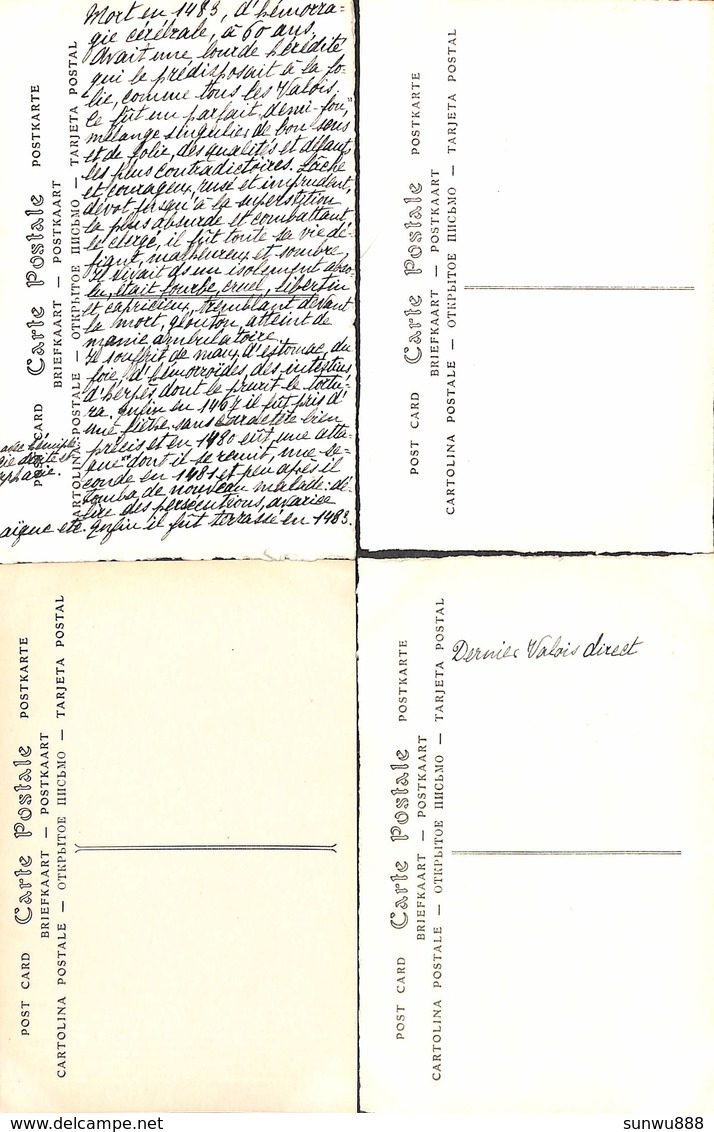 Mort en 1483, d'hémorra-
gie cérébrale, à 60 ans,
Avait une lourde hérédité
qui le prédisposait à la fo-
lie, comme tous les Valois,
Ce fût un parfait "demi-fou,"
mélange singulier de bon sens
et de folie, des qualités et défauts
les plus contradictoires. Lâche
et courageux, rusé et imprudent,
dévot jusqu'à la superstition
la plus absurde et combattant
le clergé, il fût toute sa vie dé-
fiant, malheureux et sombre,
Il vivait ds un isolement abso-
lu, était fourbe, cruel, libertin
et capricieux, tremblant devant
la mort, glouton, atteint de
manie ambulatoire.
Il souffrit de maux d'estomac, du
foie, d'hémorroïdes, des intestins
d'herpès dont le prurit le tortu-
ra. Enfin en 1467 il fût pris d'
une fièvre sans caractère bien
précis et en 1480 eût une atta-
que dont il se remit, une se-
conde en 1481 et peu après il
tomba de nouveau malade: dé-
lire des persécutions, avarice
etc. Enfin il fût terrassé en 1483.
avec hémiplé-
gie droite et
aphasie.
POST CARD Carte Postale POSTKARTE
BRIEFKAART — POSTKAART
CARTOLINA POSTALE — ОТКРЫТОЕ ПИСЬМО — TARJETA POSTAL
POST CARD Carte Postale POSTKARTE
BRIEFKAART — POSTKAART
CARTOLINA POSTALE — ОТКРЫТОЕ ПИСЬМО — TARJETA POSTAL
POST CARD Carte Postale POSTKARTE
BRIEFKAART — POSTKAART
CARTOLINA POSTALE — ОТКРЫТОЕ ПИСЬМО — TARJETA POSTAL
POST CARD Carte Postale POSTKARTE
BRIEFKAART — POSTKAART
CARTOLINA POSTALE — ОТКРЫТОЕ ПИСЬМО — TARJETA POSTAL
Dernier Valois direct
sunwu888